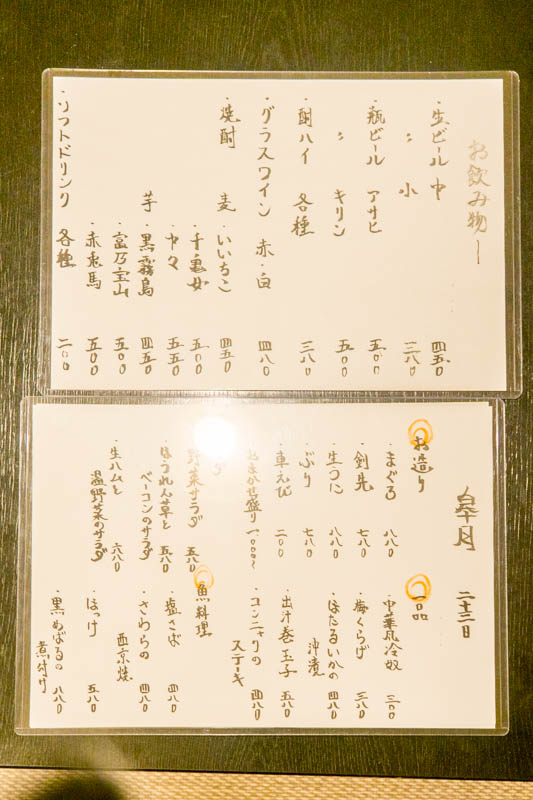 お飲み物
・生ビール 中 四五〇
〃 小 三八〇
・瓶ビール アサヒ 五〇〇
〃 キリン 五〇〇
・酎ハイ 各種 三八〇
・グラスワイン 赤・白 四八〇
・焼酎 麦 ・いいちこ 四五〇
・千亀女 五〇〇
・中々 五五〇
芋 ・黒霧島 四五〇
・富乃宝山 五〇〇
・赤兎馬 五〇〇
・ソフトドリンク 各種 二〇〇
皐月 二十二日
お造り
・まぐろ 八八〇
・剣先 七八〇
・生うに 八八〇
・ぶり 七八〇
・車えび 二〇〇
・おまかせ盛り 一〇〇〇〜
野菜サラダ 五八〇
・ほうれん草と
ベーコンのサラダ 五八〇
・生ハムと
温野菜のサラダ 六八〇
一品
・中華風冷奴 三〇〇
・梅くらげ 三八〇
・ほたるいかの
沖漬 四八〇
・出汁巻玉子 五八〇
・コンニャクの
ステーキ 四八〇
魚料理
・塩さば 四八〇
・さわらの
西京焼 四八〇
・ほっけ 五八〇
・黒めばるの
煮付け 八八〇